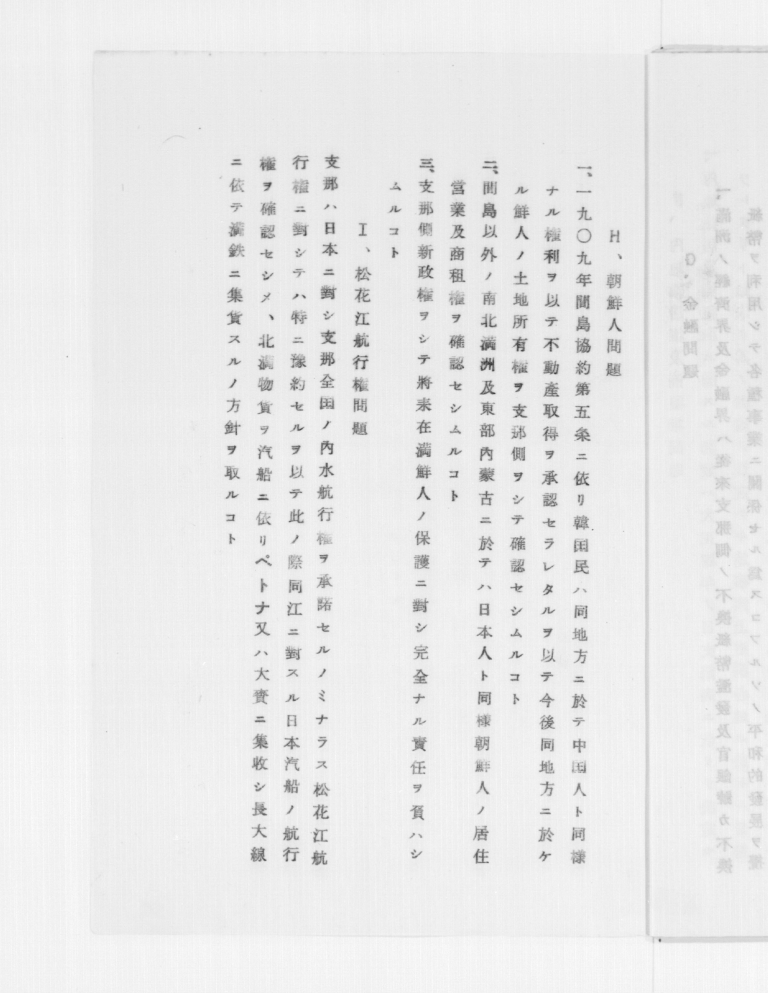 H、朝鮮人問題
一、一九〇九年間島協約第五条ニ依リ韓国民ハ同地方ニ於テ中国人ト同様
ナル権利ヲ以テ不動産取得ヲ承認セラレタルヲ以テ今後同地方ニ於ケ
ル鮮人ノ土地所有権ヲ支那側ヲシテ確認セシムルコト
二、間島以外ノ南北満洲及東部内蒙古ニ於テハ日本人ト同様朝鮮人ノ居住
営業及商租権ヲ確認セシムルコト
三、支那側新政権ヲシテ将来在満鮮人ノ保護ニ對シ完全ナル責任ヲ負ハシ
ムルコト
I、松花江航行権問題
支那ハ日本ニ對シ支那全国ノ内水航行権ヲ承諾セルノミナラス松花江航
行権ニ對シテハ特ニ豫約セルヲ以テ此ノ際同江ニ對スル日本汽船ノ航行
権ヲ確認セシメ、北満物貨ヲ汽船ニ依リペトナ又ハ大賚ニ集収シ長大線
ニ依テ満鉄ニ集貨スルノ方針ヲ取ルコト